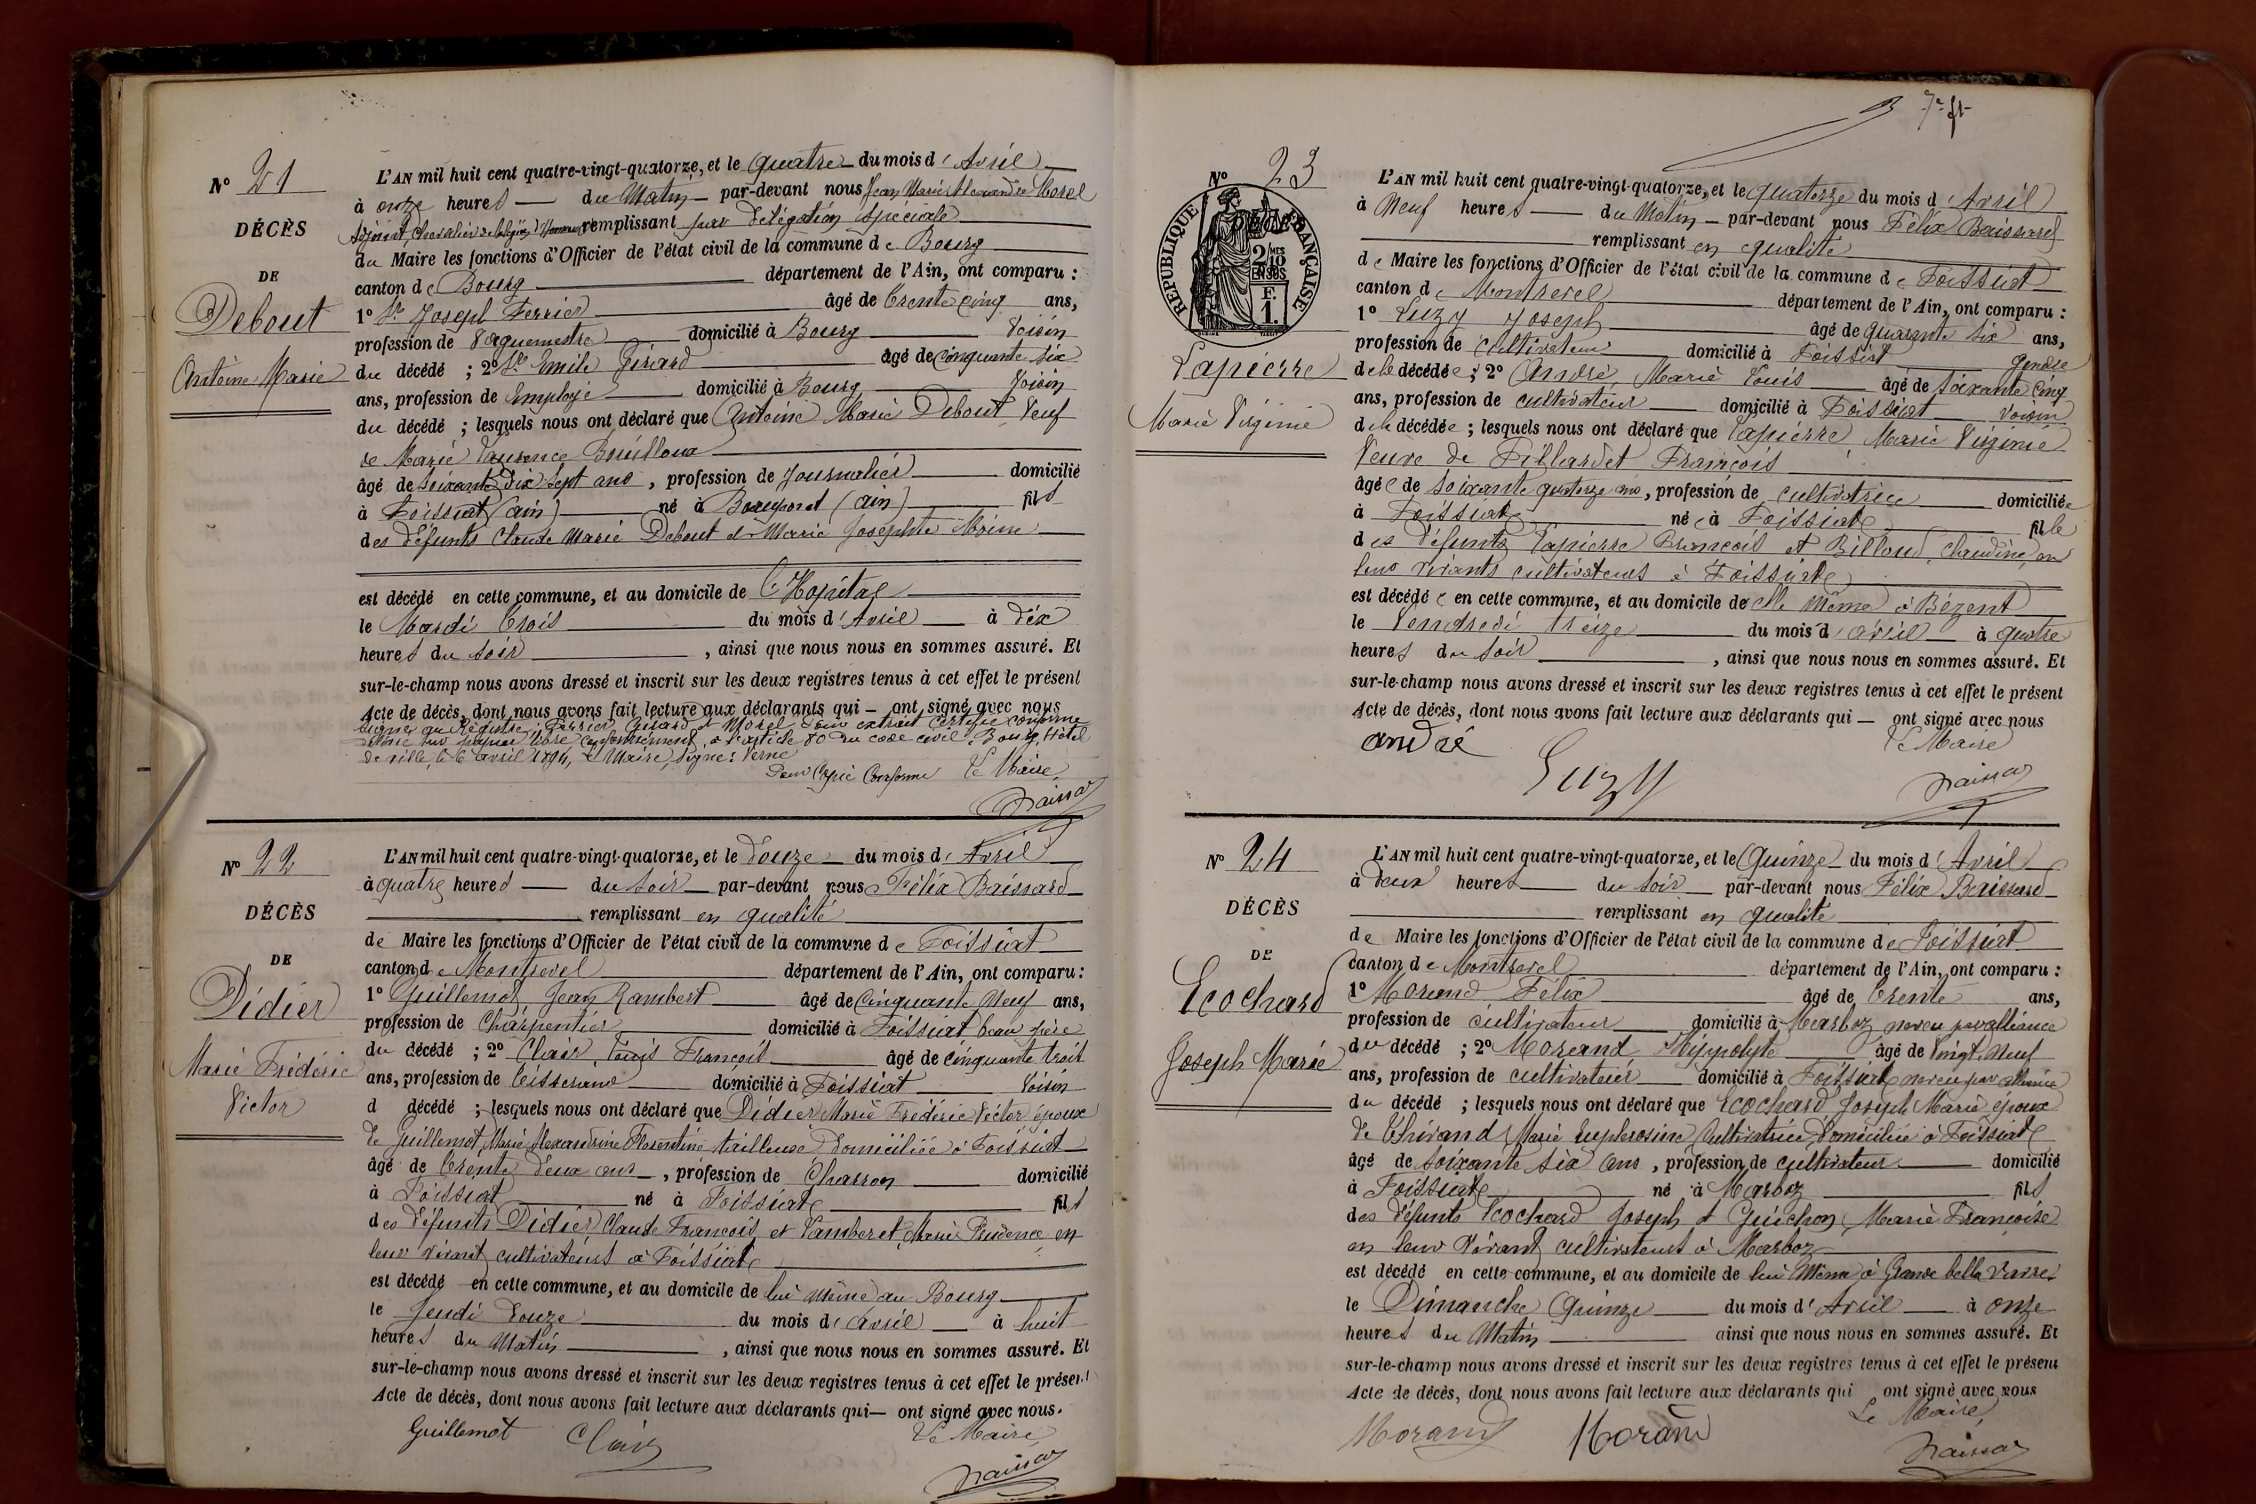 N° 21
DÉCÈS
DE
Debout
Antoine Marie
L'AN mil huit cent quatre-vingt-quatorze, et le quatre du mois d'Avril
à onze heures du Matin par-devant nous Jean Marie Alexandre Morel
Adjoint, Chevalier de la légion d'honneur remplissant par délégation spéciale
du Maire les fonctions d'Officier de l'état civil de la commune de Bourg
canton de Bourg département de l'Ain, ont comparu :
1° Sr Joseph Ferrier âgé de trente cinq ans,
profession de Vaguemestre domicilié à Bourg Voisin
du décédé ; 2° Sr Emile Girard âgé de cinquante six
ans, profession de Employé domicilié à Bourg Voisin
du décédé ; lesquels nous ont déclaré que Antoine Marie Debout Veuf
de Marie Laurence Bouilloux
âgé de soixante dix sept ans, profession de Journalier domicilié
à Foissiat (ain) né à (ain) fils
des défunts Claude Marie Debout et Marie Josephte
est décédé en cette commune, et au domicile de l'Hôpital
le Mardi trois du mois d'Avril à dix
heures du soir, ainsi que nous nous en sommes assuré. Et
sur-le-champ nous avons dressé et inscrit sur les deux registres tenus à cet effet le présent
Acte de décès, dont nous avons fait lecture aux déclarants qui — ont signé avec nous
Signé au Registre : Ferrier, Girard et Morel. Pour extrait certifié conforme
délivré sur papier libre conformément à l'article 80 du code civil. Bourg, Hôtel
de ville, le 6 avril 1894, le Maire, signé : Verne
Pour Copie Conforme Le Maire,
N° 22
DÉCÈS
DE
Didier
Marie Frédéric
Victor
L'AN mil huit cent quatre-vingt-quatorze, et le douze du mois d'Avril
à quatre heures du soir par-devant nous Félix Baissard
remplissant en qualité
de Maire les fonctions d'Officier de l'état civil de la commune de Foissiat
canton de Montrevel département de l'Ain, ont comparu :
1° Guillemot Jean Rambert âgé de Cinquante Neuf ans,
profession de Charpentier domicilié à Foissiat beau père
du décédé ; 2° Clair, Louis François âgé de cinquante trois
ans, profession de tisserand domicilié à Foissiat Voisin
d décédé ; lesquels nous ont déclaré que Didier Marie Frédéric Victor époux
de Guillemot, Marie Alexandrine Florentine tailleuse domiciliée à Foissiat
âgé de trente deux ans, profession de Charron domicilié
à Foissiat né à Foissiat fils
des défunts Didier, Claude François et Vamberet, Marie Prudence en
leur vivant cultivateurs à Foissiat
est décédé en cette commune, et au domicile de lui même au Bourg
le Jeudi douze du mois d'avril à huit
heures du Matin, ainsi que nous nous en sommes assuré. Et
sur-le-champ nous avons dressé et inscrit sur les deux registres tenus à cet effet le présent
Acte de décès, dont nous avons fait lecture aux déclarants qui — ont signé avec nous.
Guillemot Clair Le Maire,
7e ft
N° 23
RÉPUBLIQUE FRANÇAISE
DÉCÈS
2/10
EN SUS
F.
1.
Lapierre
Marie Virginie
L'AN mil huit cent quatre-vingt-quatorze, et le quatorze du mois d'Avril
à Neuf heures du Matin par-devant nous Félix Baissard
remplissant en qualité
de Maire les fonctions d'Officier de l'état civil de la commune de Foissiat
canton de Montrevel département de l'Ain, ont comparu :
1° Luzy Joseph âgé de quarante six ans,
profession de cultivateur domicilié à Foissiat gendre
de la décédée ; 2° André, Marie Louis âgé de soixante cinq
ans, profession de cultivateur domicilié à Foissiat voisin
de la décédée ; lesquels nous ont déclaré que Lapierre Marie Virginie
Veuve de Pillardet François
âgée de soixante quatorze ans, profession de cultivatrice domiciliée
à Foissiat née à Foissiat fille
des défunts Lapierre François et Billoud, Claudine, en
leur vivants cultivateurs à Foissiat
est décédée en cette commune, et au domicile de elle même à Bézent
le Vendredi treize du mois d'avril à quatre
heures du soir, ainsi que nous nous en sommes assuré. Et
sur-le-champ nous avons dressé et inscrit sur les deux registres tenus à cet effet le présent
Acte de décès, dont nous avons fait lecture aux déclarants qui — ont signé avec nous
andré Luzy Le Maire
N° 24
DÉCÈS
DE
Ecochard
Joseph Marie
L'AN mil huit cent quatre-vingt-quatorze, et le Quinze du mois d'Avril
à deux heures du soir par-devant nous Félix Baissard
remplissant en qualité
de Maire les fonctions d'Officier de l'état civil de la commune de Foissiat
canton de Montrevel département de l'Ain, ont comparu :
1° Morand Félix âgé de trente ans,
profession de cultivateur domicilié à Marboz neveu par alliance
du décédé ; 2° Morand, Hippolyte âgé de Vingt Neuf
ans, profession de cultivateur domicilié à Foissiat neveu par alliance
du décédé ; lesquels nous ont déclaré que Ecochard Joseph Marie époux
de Marie Euphrosine Cultivatrice domiciliée à Foissiat
âgé de soixante six ans, profession de cultivateur domicilié
à Foissiat né à Marboz fils
des défunts Ecochard Joseph et Guichon, Marie Françoise
en leur Vivant cultivateurs à Marboz
est décédé en cette commune, et au domicile de lui Même à
le Dimanche Quinze du mois d'Avril à onze
heures du Matin ainsi que nous nous en sommes assuré. Et
sur-le-champ nous avons dressé et inscrit sur les deux registres tenus à cet effet le présent
Acte de décès, dont nous avons fait lecture aux déclarants qui ont signé avec nous
Morand Morand Le Maire,